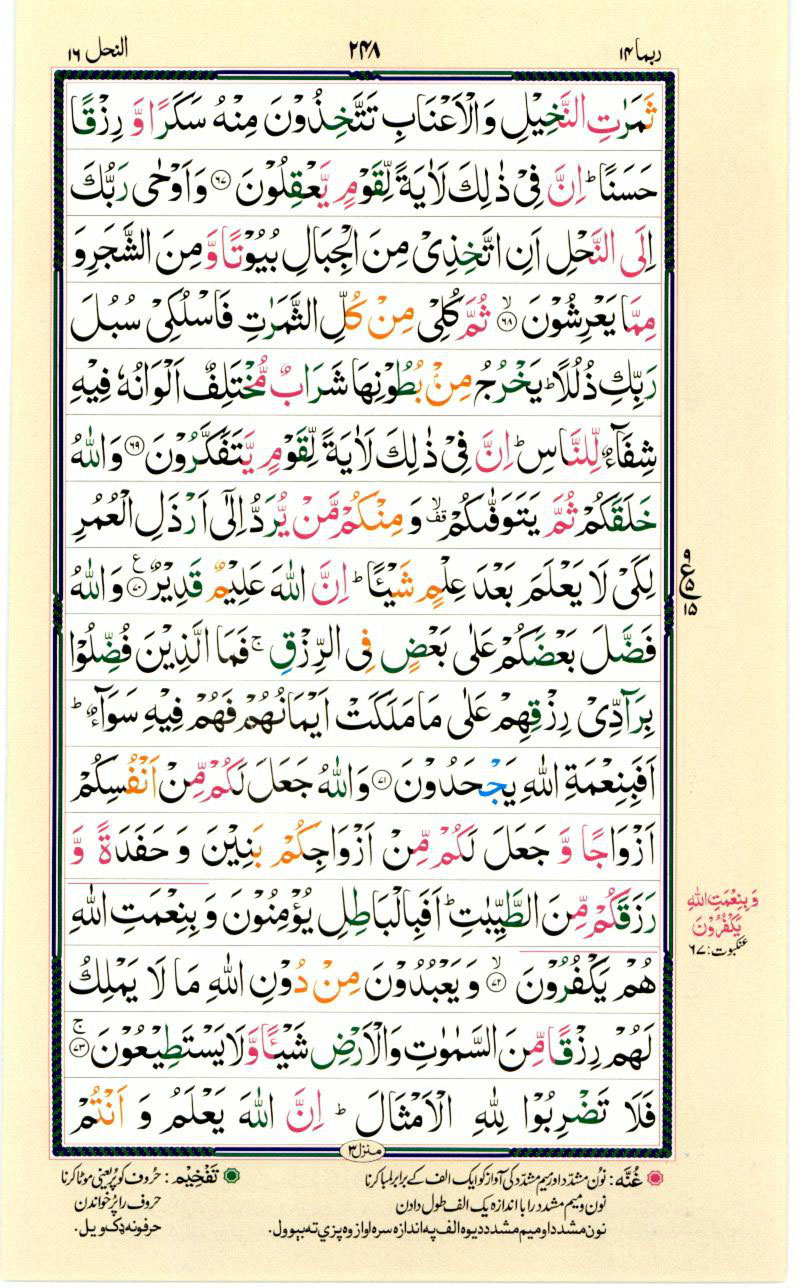 ربما ۱۴
۲۴۸
النحل ۱۶
ثَمَرٰتِ النَّخِيْلِ وَالْاَعْنَابِ تَتَّخِذُوْنَ مِنْهُ سَكَرًا وَّ رِزْقًا
حَسَنًا ؕ اِنَّ فِىْ ذٰ لِكَ لَاٰيَةً لِّقَوْمٍ يَّعْقِلُوْنَ ۶۷ وَاَوْحٰى رَبُّكَ
اِلَى النَّحْلِ اَنِ اتَّخِذِىْ مِنَ الْجِبَالِ بُيُوْتًا وَّمِنَ الشَّجَرِ وَ
مِمَّا يَعْرِشُوْنَ ۙ ۶۸ ثُمَّ كُلِىْ مِنْ كُلِّ الثَّمَرٰتِ فَاسْلُكِىْ سُبُلَ
رَبِّكِ ذُلُلًا ؕ يَخْرُجُ مِنْۢ بُطُوْنِهَا شَرَابٌ مُّخْتَلِفٌ اَلْوَانُهٗ فِيْهِ
شِفَآءٌ لِّلنَّاسِ ؕ اِنَّ فِىْ ذٰ لِكَ لَاٰيَةً لِّقَوْمٍ يَّتَفَكَّرُوْنَ ۶۹ وَاللّٰهُ
خَلَقَكُمْ ثُمَّ يَتَوَفّٰٮكُمْ ۙ قف وَ مِنْكُمْ مَّنْ يُّرَدُّ اِلٰٓى اَرْذَلِ الْعُمُرِ
لِكَىْ لَا يَعْلَمَ بَعْدَ عِلْمٍ شَيْـًٔا ؕ اِنَّ اللّٰهَ عَلِيْمٌ قَدِيْرٌ ۷۰ ع وَاللّٰهُ
فَضَّلَ بَعْضَكُمْ عَلٰى بَعْضٍ فِى الرِّزْقِ ۚ فَمَا الَّذِيْنَ فُضِّلُوْا
بِرَآدِّىْ رِزْقِهِمْ عَلٰى مَا مَلَكَتْ اَيْمَانُهُمْ فَهُمْ فِيْهِ سَوَآءٌ ؕ
اَفَبِنِعْمَةِ اللّٰهِ يَجْحَدُوْنَ ۷۱ وَاللّٰهُ جَعَلَ لَكُمْ مِّنْ اَنْفُسِكُمْ
اَزْوَاجًا وَّ جَعَلَ لَكُمْ مِّنْ اَزْوَاجِكُمْ بَنِيْنَ وَ حَفَدَةً وَّ
رَزَقَكُمْ مِّنَ الطَّيِّبٰتِ ؕ اَفَبِالْبَاطِلِ يُؤْمِنُوْنَ وَ بِنِعْمَتِ اللّٰهِ
هُمْ يَكْفُرُوْنَ ۙ ۷۲ وَ يَعْبُدُوْنَ مِنْ دُوْنِ اللّٰهِ مَا لَا يَمْلِكُ
لَهُمْ رِزْقًا مِّنَ السَّمٰوٰتِ وَالْاَرْضِ شَيْـًٔا وَّلَا يَسْتَطِيْعُوْنَ ۚ ۷۳
فَلَا تَضْرِبُوْا لِلّٰهِ الْاَمْثَالَ ؕ اِنَّ اللّٰهَ يَعْلَمُ وَ اَنْتُمْ
۹
ع ۵
۱۵
وَ بِنِعْمَتِ اللّٰهِ
يَكْفُرُوْنَ
عنکبوت: ۶۷
منزل ۳
غُنَّه: نُون مشدّد اور میم مشدّد کی آواز کو ایک الف کے برابر لمبا کرنا
نون و میم مشدد را با اندازه یک الف طول دادن
نون مشدد او میم مشدد دیوه الف په اندازه سره اواز وه پزې ته بېوول.
تَفْخِیْم: حُروف کو پُر یعنی موٹا کرنا
حروف را پُر خواندن
حرفونه ډک ویل.